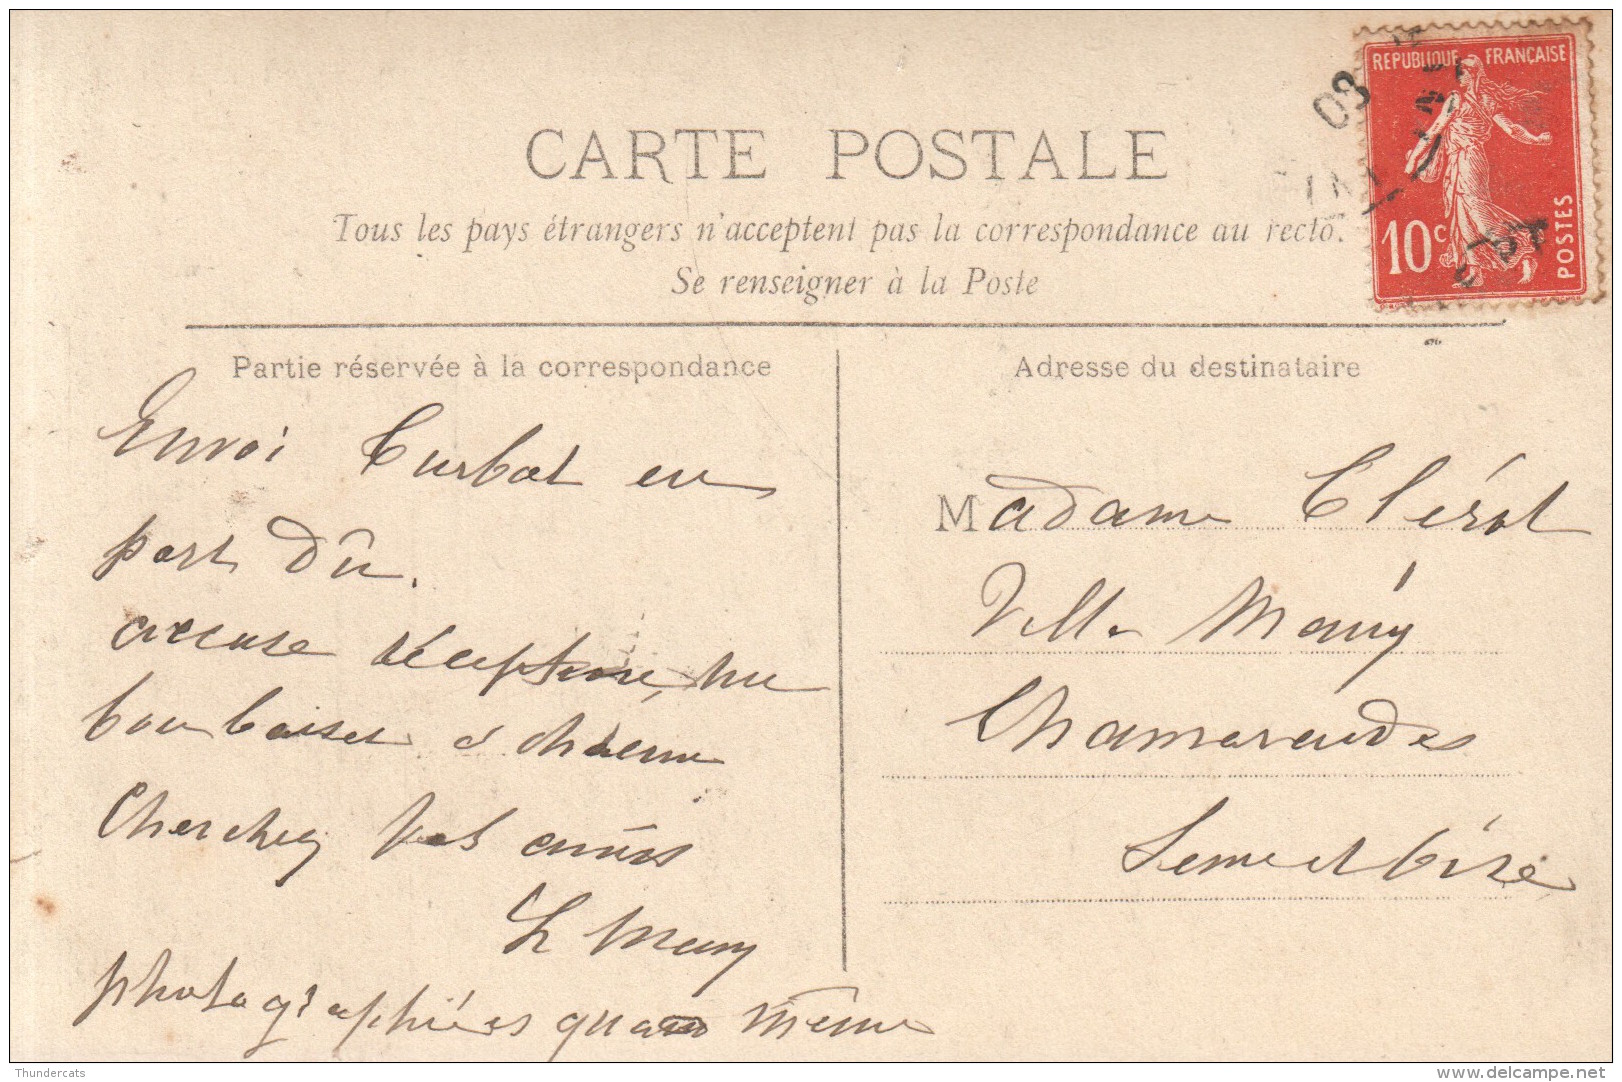 CARTE POSTALE
Tous les pays étrangers n'acceptent pas la correspondance au recto.
Se renseigner à la Poste
REPUBLIQUE FRANÇAISE
10c
POSTES
08
Partie réservée à la correspondance
Envoi Turbot en
port dû.
accuse réception, un
bon baiser à chacune
Cherchez vos amies
photographiées quand même
Adresse du destinataire
Madame Clérot
Villa Mauy
Chamarandes
Seine et Oise
Thundercats
www.delcampe.net